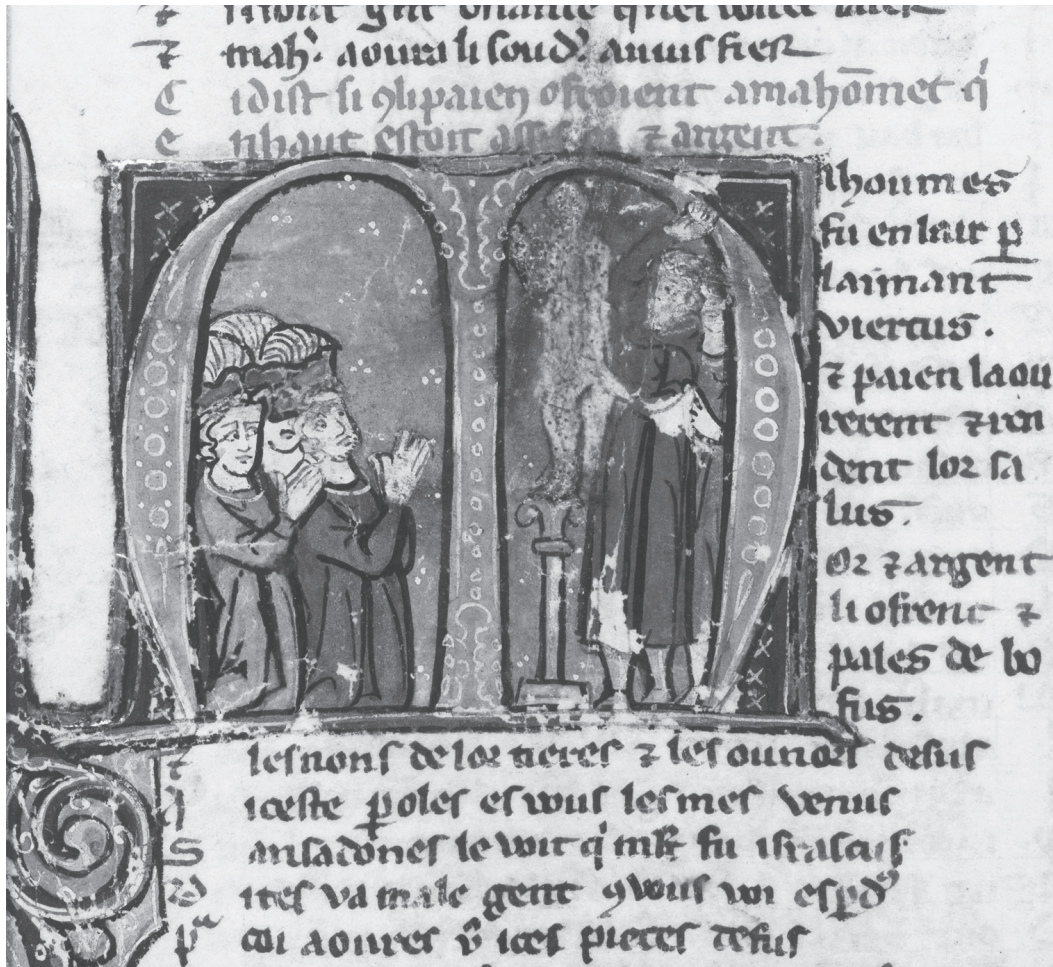 ⁊ mahꝰ. aoura li soudꝰ. auuis fier
C i dist si ꝯ li paien ofroient a mahōmet qͥ
e nhaut estoit ⁊ argent.
M ahoumes
fu en lair ꝑ
laimant
viertus.
⁊ paien laou
rerent ⁊ ren
dent lor sa
lus.
Or ⁊ argent
li ofrent ⁊
pales de bo
fus.
⁊ les nons de lor tieres ⁊ les ounors desus
A iceste ꝑoles es wus les mes venus
S ansadones le voit qͥ fu irascus
D ites va male gent ꝯ vous voi esꝑdꝰ
pᵃ coi aoures vꝰ ices pieces desus